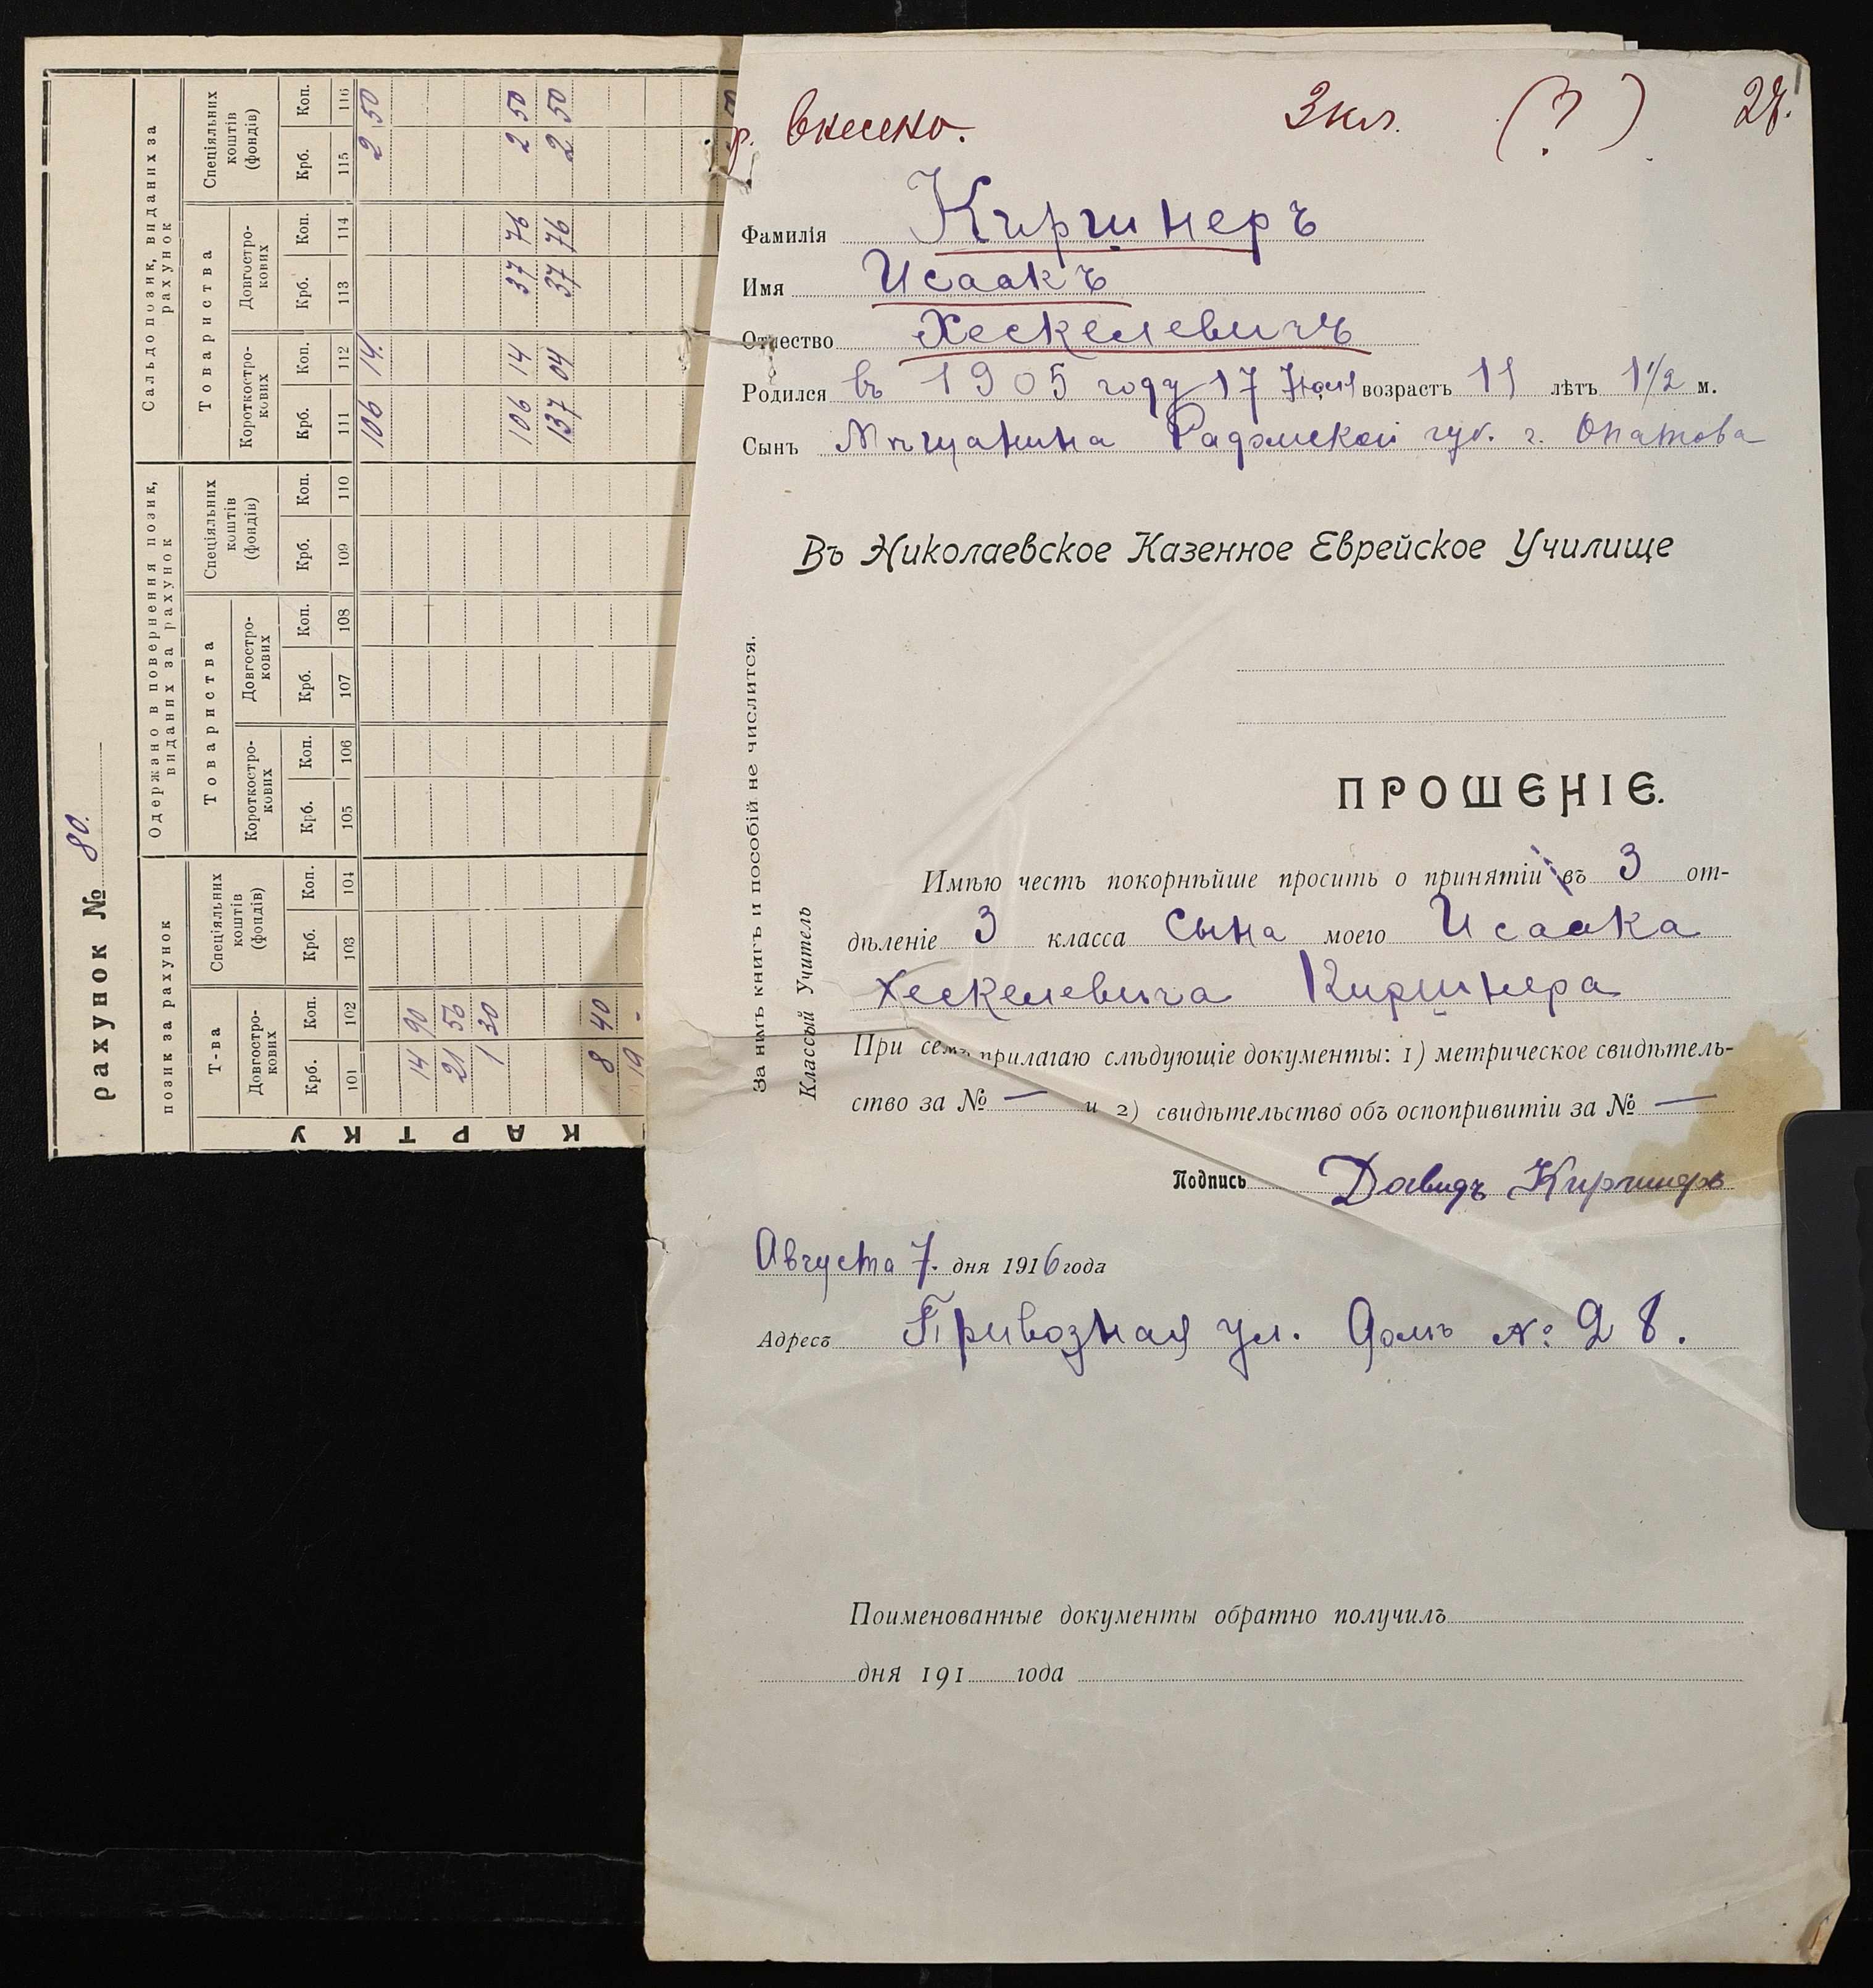 рахунок № 80.
позик за рахунок
Одержано в повернення позик, виданих за рахунок
Сальдо позик, виданих за рахунок
Т-ва
Спеціяльних коштів (фондів)
Товариства
Спеціяльних коштів (фондів)
Товариства
Спеціяльних коштів (фондів)
Довгостро-кових
Короткостро-кових
Довгостро-кових
Короткостро-кових
Довгостро-кових
Крб. Коп. Крб. Коп. Крб. Коп. Крб. Коп. Крб. Коп. Крб. Коп. Крб. Коп. Крб. Коп.
101 102 103 104 105 106 107 108 109 110 111 112 113 114 115 116
106 14. 2 50
14 90
21 56
1 30
106 14 37 76 2 50
137 04 37 76 2 50
8 40
19 -
КАРТКУ
р. внесено. 3 кл. (?) 28.
Фамилія Киршнеръ
Имя Исаакъ
Отчество Хескелевичъ
Родился въ 1905 году 17 Іюня возрастъ 11 лѣтъ 1 1/2 м.
Сынъ Мѣщанина Радомской губ. г. Опатова
Въ Николаевское Казенное Еврейское Училище
ПРОШЕНІЕ.
Имѣю честь покорнѣйше просить о принятіи въ 3 от-
дѣленіе 3 класса сына моего Исаака
Хескелевича Киршнера
При семъ прилагаю слѣдующіе документы: 1) метрическое свидѣтель-
ство за № — и 2) свидѣтельство объ оспопривитіи за № —
Подпись Давидъ Киршнеръ
Августа 7. дня 1916 года
Адресъ Привозная ул. домъ № 28.
Поименованные документы обратно получилъ
дня 191 года
За нимъ книгъ и пособій не числится.
Классный Учитель